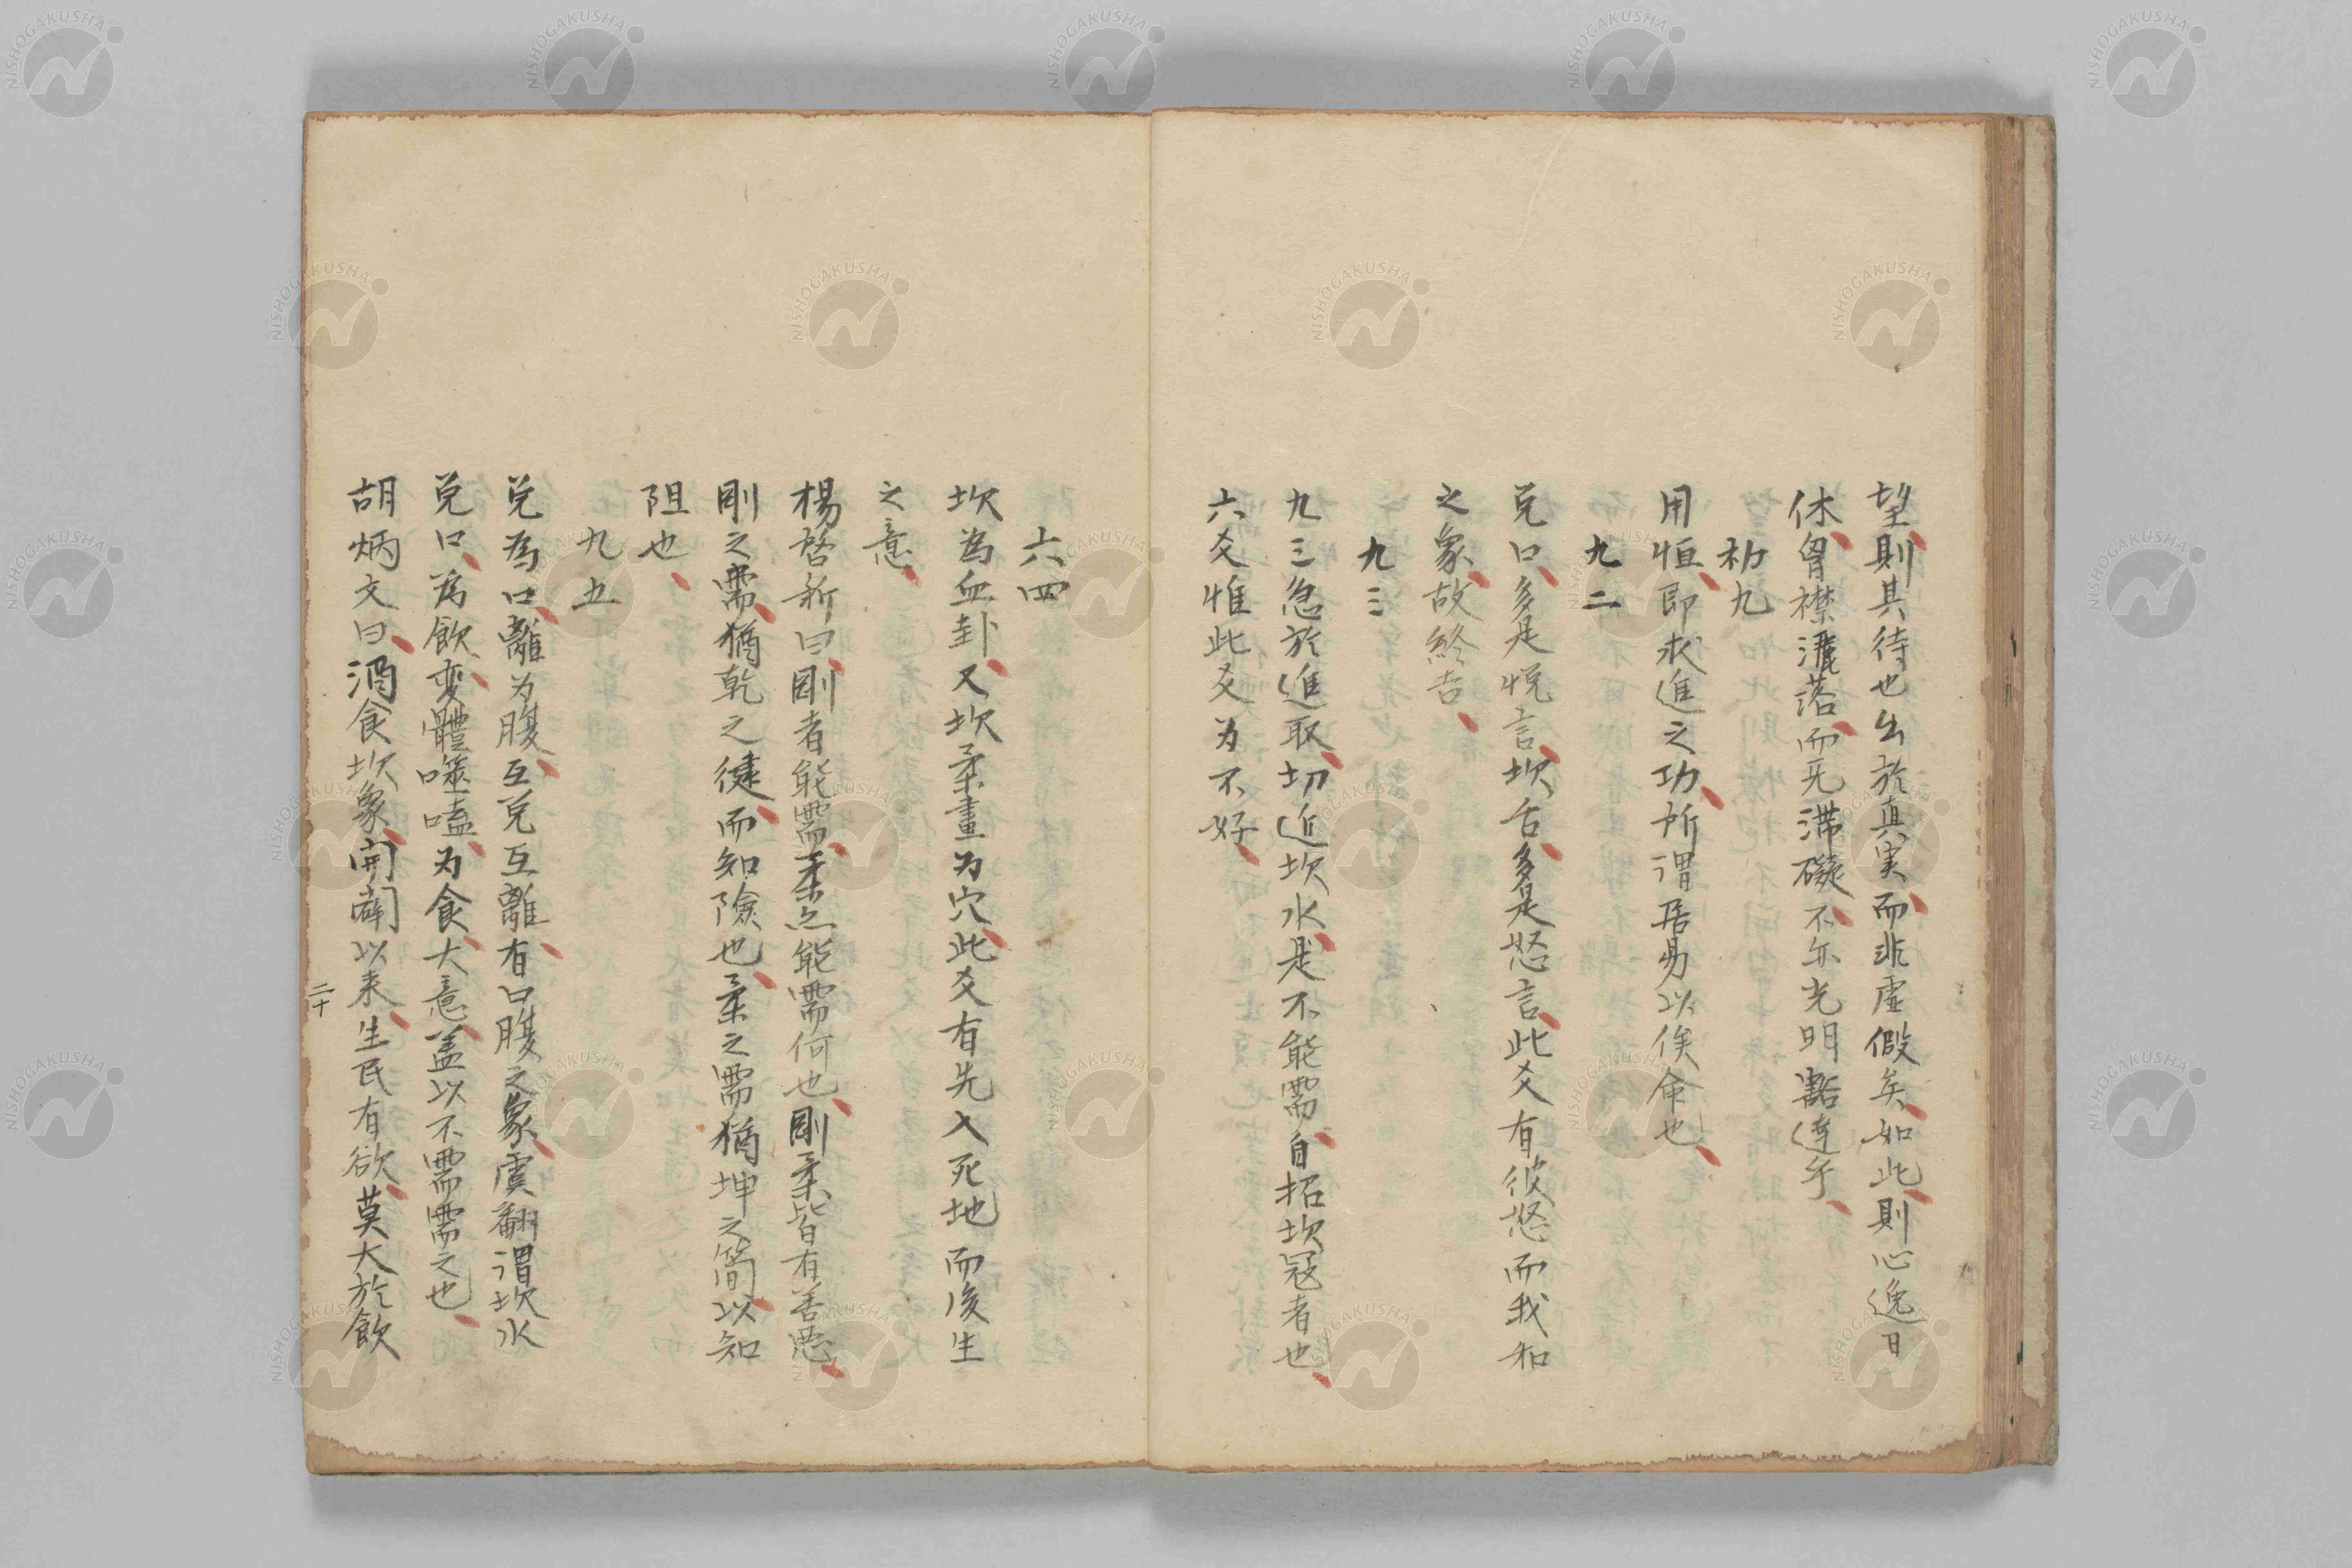 望則其待也出於真実而非虛假矣如此則心逸日
休胷襟灑落而无滞礙不亦光明豁達乎
初九
用恒即求進之功所謂居易以俟命也
九二
兌口多是悦言坎舌多是怒言此爻有彼怒而我和
之象故終吉
九三
九三急於進取切近坎水是不能需自招坎冦者也
六爻惟此爻为不好
六四
坎為血卦又坎柔畫为穴此爻有先入死地而後生
之意
楊啓新曰剛者能需柔亦能需何也剛柔皆有善惡
剛之需猶乾之健而知險也柔之需猶坤之簡以知
阻也
九五
兌為口離为腹互兌互離有口腹之象虞翻謂坎水
兌口為飲変體噬嗑为食大意盖以不需需之也
胡炳文曰酒食坎象開闢以来生民有欲莫大於飲
二十
NISHOGAKUSHA